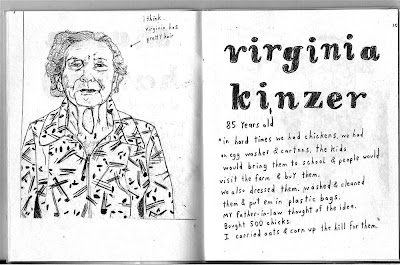 i think
virginia has
pretty hair
virginia
kinzer
85 years old
"in hard times we had chickens, we had
an egg washer & cartons, the kids
would bring them to school & people would
visit the farm & buy them.
We also dressed them, washed & cleaned
them & put em in plastic bags.
My father-in-law thought of the idea.
Bought 500 chicks.
I carried oats & corn up the hill for them."